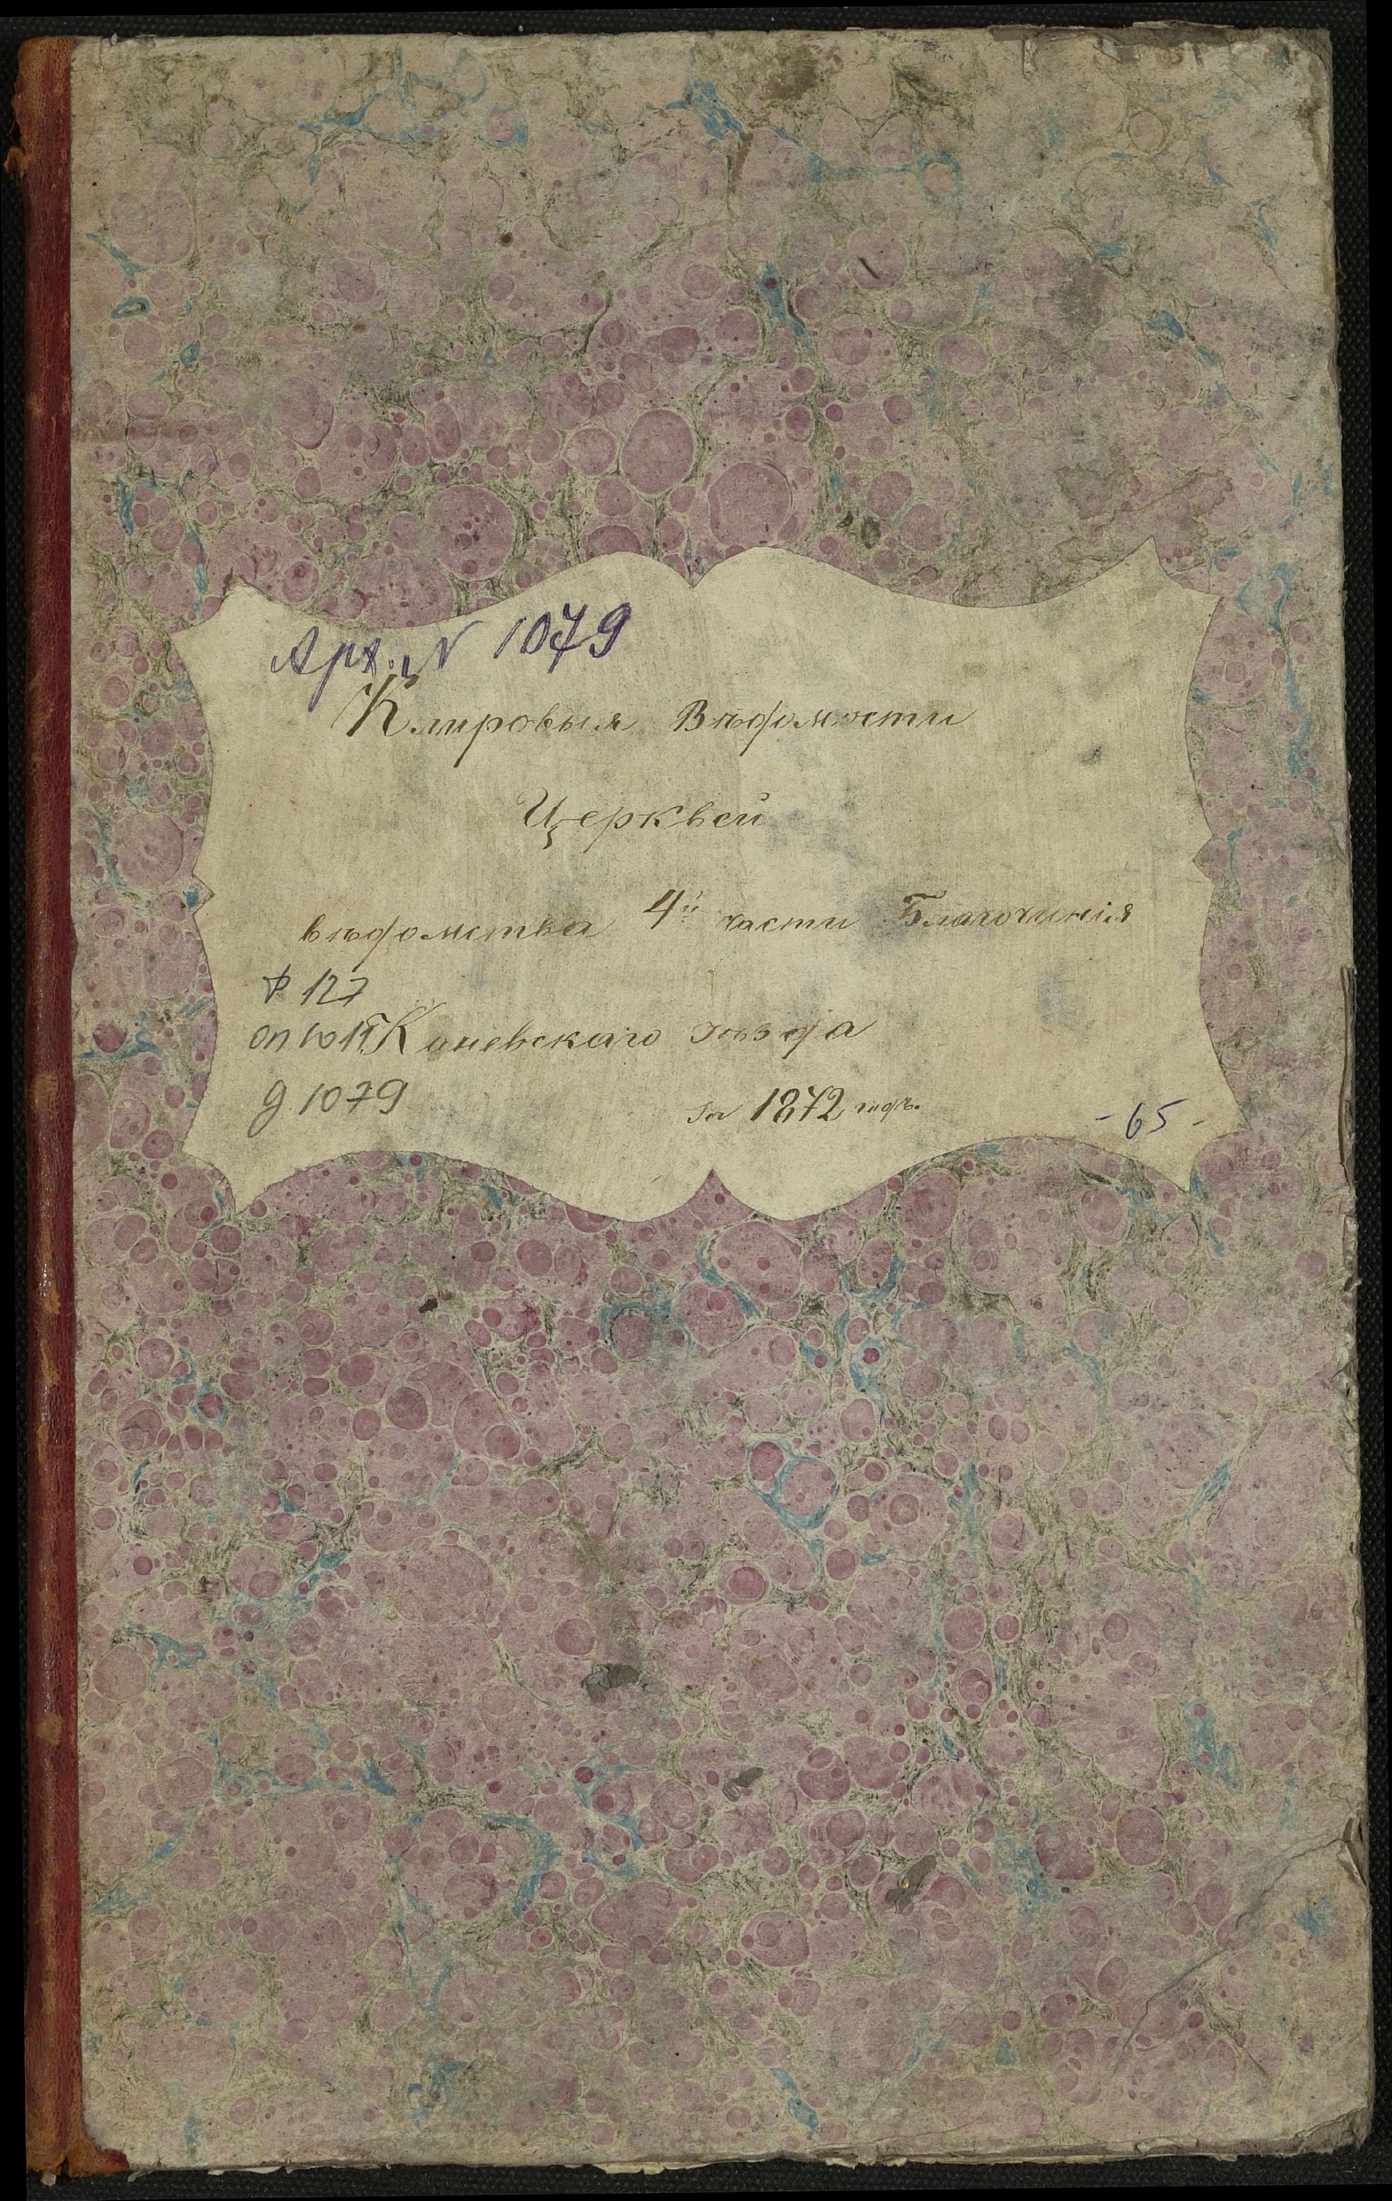 Арх. N 1079
Клировыя Вѣдомости
Церквей
вѣдомства 4й части Благочинія
Ф 127
Каневскаго уѣзда
д. 1079
за 1872 годъ.
- 65 -